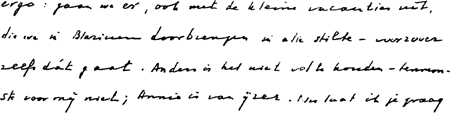 ergo: gaan we er, ook met de kleine vacanties uit,
die we in Blaricum doorbrengen in alle stilte - voorzover
zelfs dát gaat. Anders is het niet vol te houden - tenmin-
ste voor mij niet; Annie is van ijzer. Nu laat ik je graag